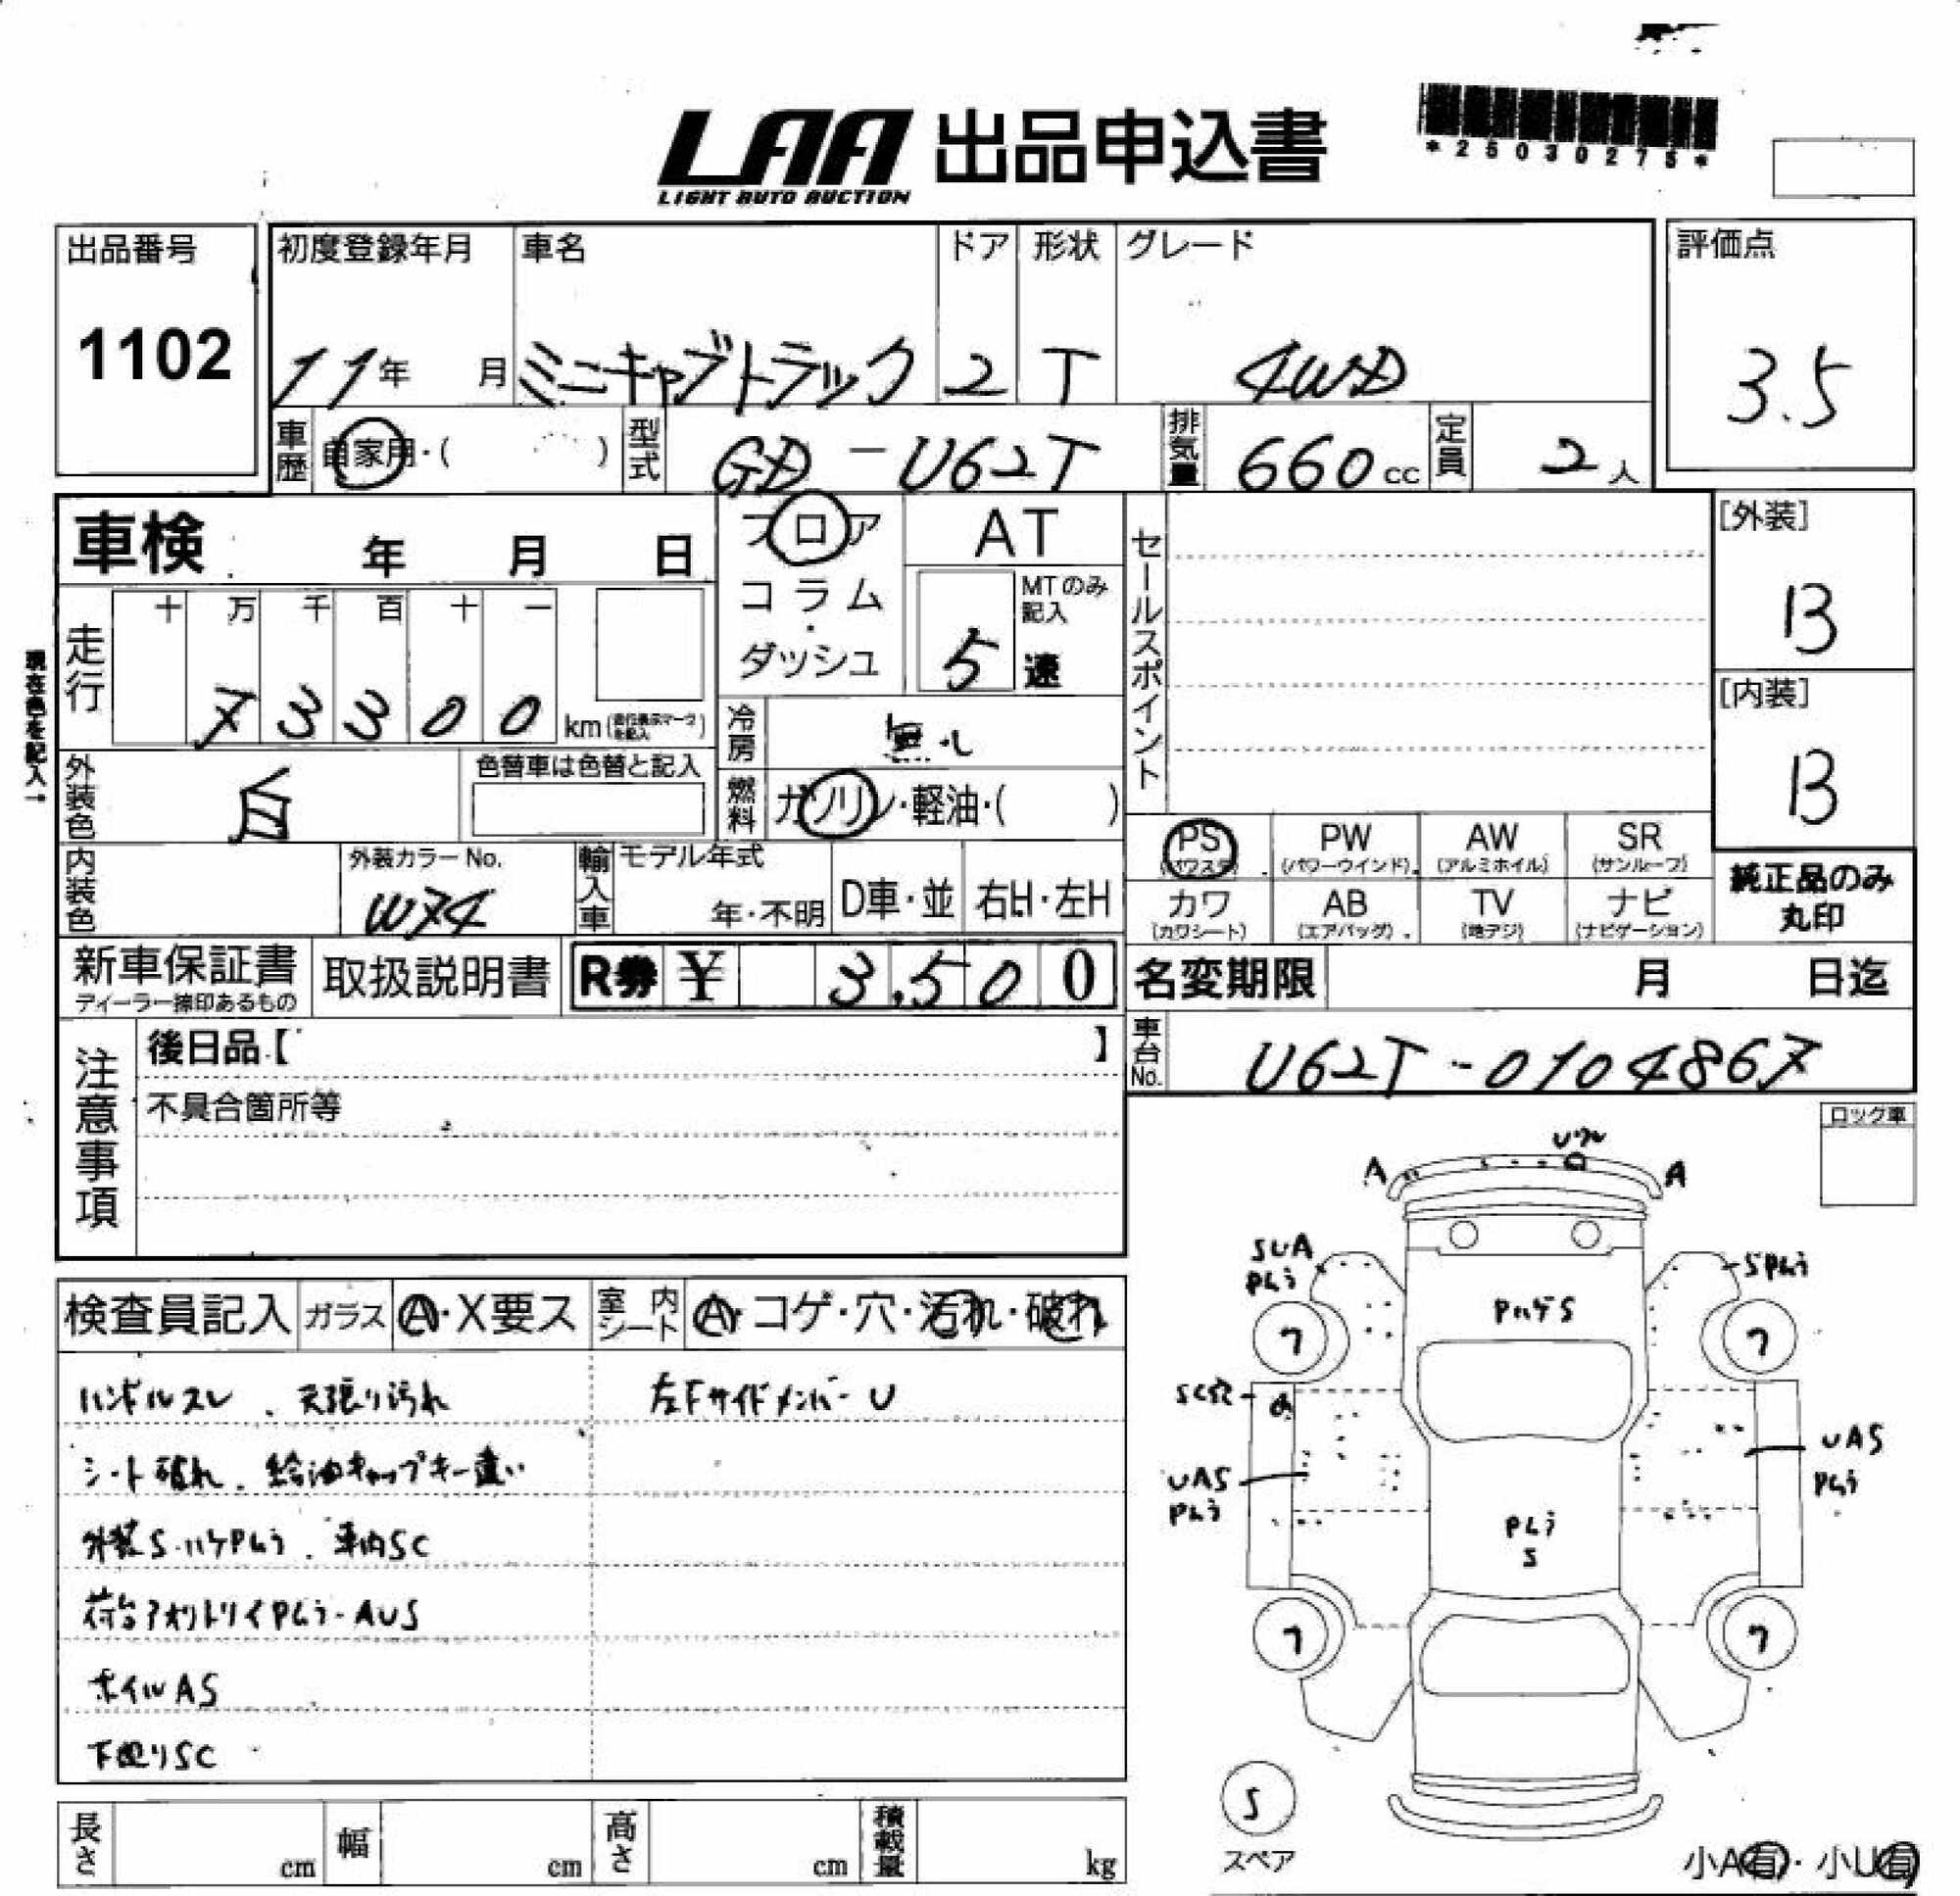 LAA 出品申込書
LIGHT AUTO AUCTION
*25030275*
出品番号
1102
初度登録年月
11年 月
車名
ミニキャブトラック
ドア
2
形状
T
グレード
4WD
評価点
3.5
車歴 自家用・( )
型式 GD-U62T
排気量 660cc
定員 2人
車検 年 月 日
フロア
コラム
・
ダッシュ
AT
MTのみ記入
5速
セールスポイント
[外装]
B
[内装]
B
現在色を記入→
走行 十 万 千 百 十 一
73300 km(走行表示マークを記入)
冷房 無し
燃料 ガソリン・軽油・( )
外装色 白
色替車は色替と記入
PS (パワステ) PW (パワーウインド) AW (アルミホイル) SR (サンルーフ)
カワ (カワシート) AB (エアバッグ) TV (地デジ) ナビ (ナビゲーション)
純正品のみ
丸印
内装色
外装カラーNo.
W74
輸入車 モデル年式 年・不明 D車・並 右H・左H
新車保証書
ディーラー捺印あるもの
取扱説明書
R券 ¥ 3,500
名変期限 月 日迄
車台No. U62T-0104867
注意事項
後日品【 】
不具合箇所等
ロック車
検査員記入 ガラス A・X要ス 室内シート A・コゲ・穴・汚れ・破れ
ハンドルスレ、天張り汚れ
左Fサイドメンバー U
シート破れ、給油キャップキー違い
外装S・ハゲPムラ、車内SC
荷台アオリトリイPムラ・AUS
ホイルAS
下廻りSC
A
A
SUA
Pムラ
SPムラ
PハゲS
フ
フ
SC穴
UAS
Pムラ
UAS
Pムラ
Pムラ
S
フ
フ
S
スペア
小A有・小U有
長さ cm 幅 cm 高さ cm 積載量 kg